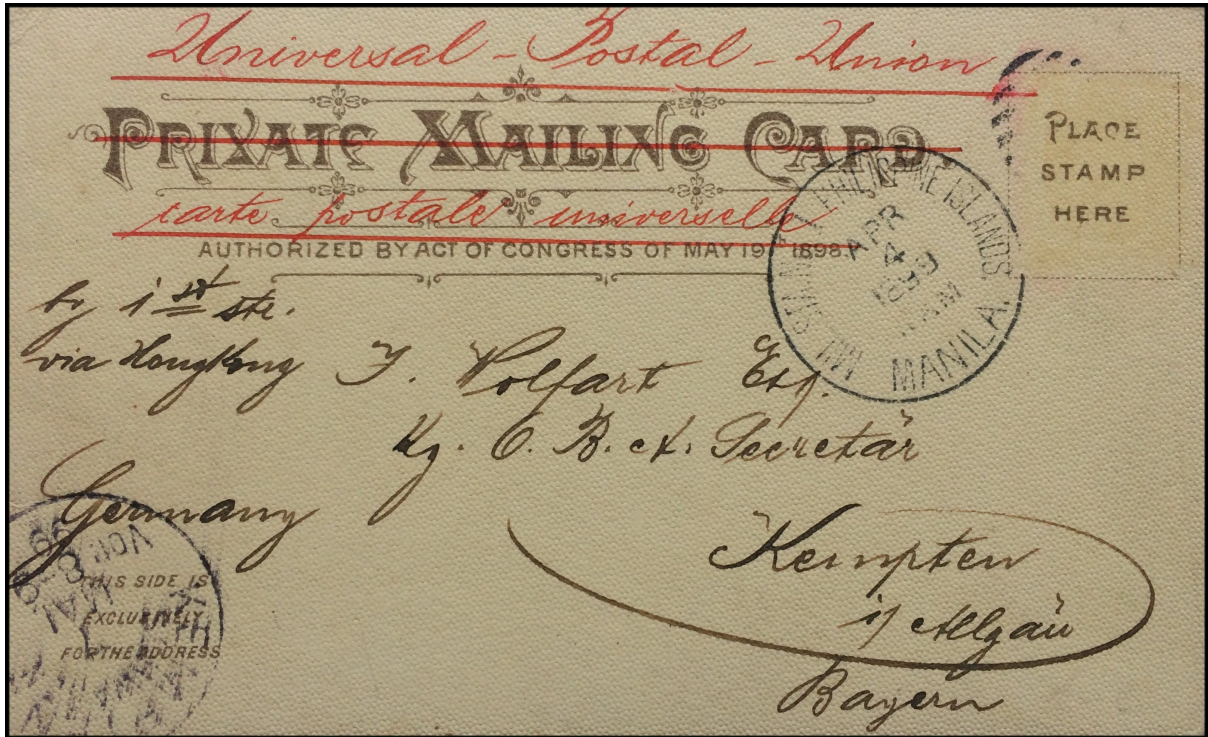 Universal - Postal - Union
PRIVATE MAILING CARD
carte postale universelle
AUTHORIZED BY ACT OF CONGRESS OF MAY 19TH 1898.
PLACE
STAMP
HERE
MIL. STA. NO. 1 PHILIPPINE ISLANDS.
APR
4
1899
AM
MANILA.
by 1st ste.
via HongKong
F. Wolfart Esq.
Kg. O. B. A. Secretär
Germany
Kempten
i/ Allgäu
Bayern
8 MAI 99
VOR
THIS SIDE IS
EXCLUSIVELY
FOR THE ADDRESS